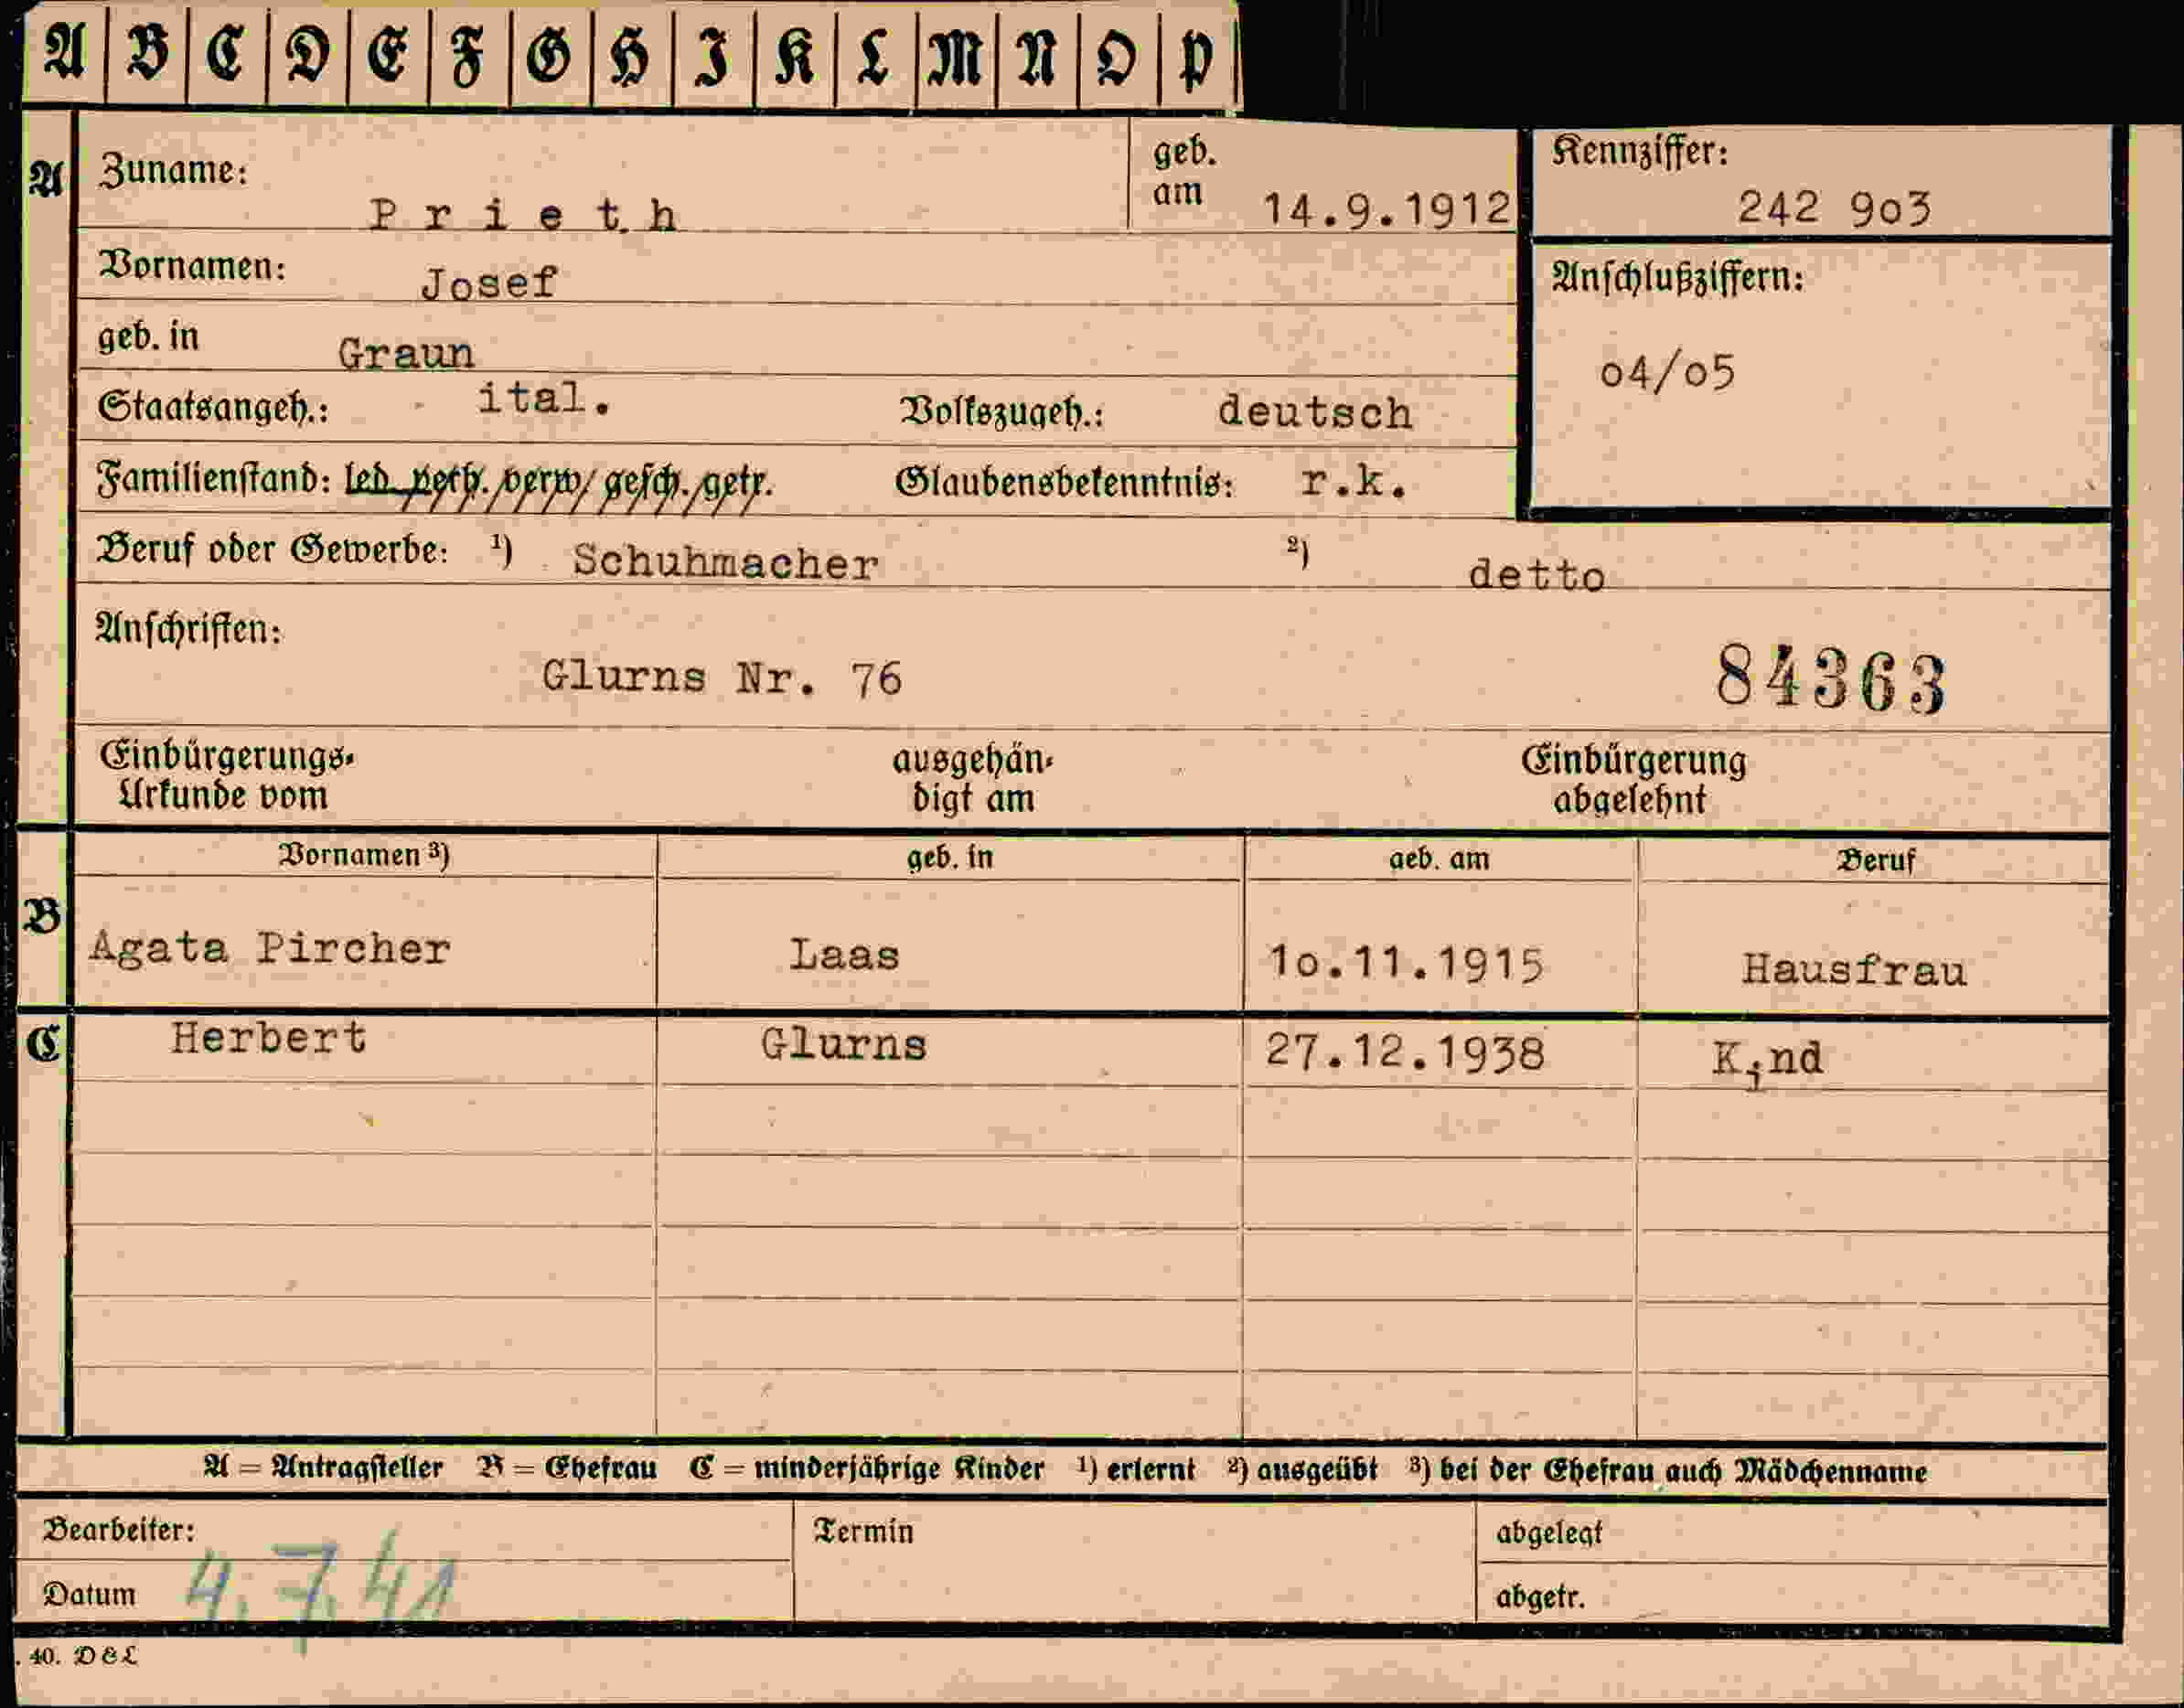 A B C D E F G H I K L M N O P
A Zuname: Prieth geb. am 14.9.1912 Kennziffer: 242 9o3
Vornamen: Josef Anschlußziffern:
geb. in Graun o4/o5
Staatsangeh.: ital. Volkszugeh.: deutsch
Familienstand: led. verh. verw. gesch. getr. Glaubensbekenntnis: r.k.
Beruf oder Gewerbe: 1) Schuhmacher 2) detto
Anschriften:
Glurns Nr. 76 84363
Einbürgerungs- ausgehän- Einbürgerung
Urkunde vom digt am abgelehnt
Vornamen 3) geb. in geb. am Beruf
B Agata Pircher Laas 1o.11.1915 Hausfrau
C Herbert Glurns 27.12.1938 K;nd
A = Antragsteller B = Ehefrau C = minderjährige Kinder 1) erlernt 2) ausgeübt 3) bei der Ehefrau auch Mädchenname
Bearbeiter: Termin abgelegt
Datum 4.7.41 abgetr.
. 40. D & L